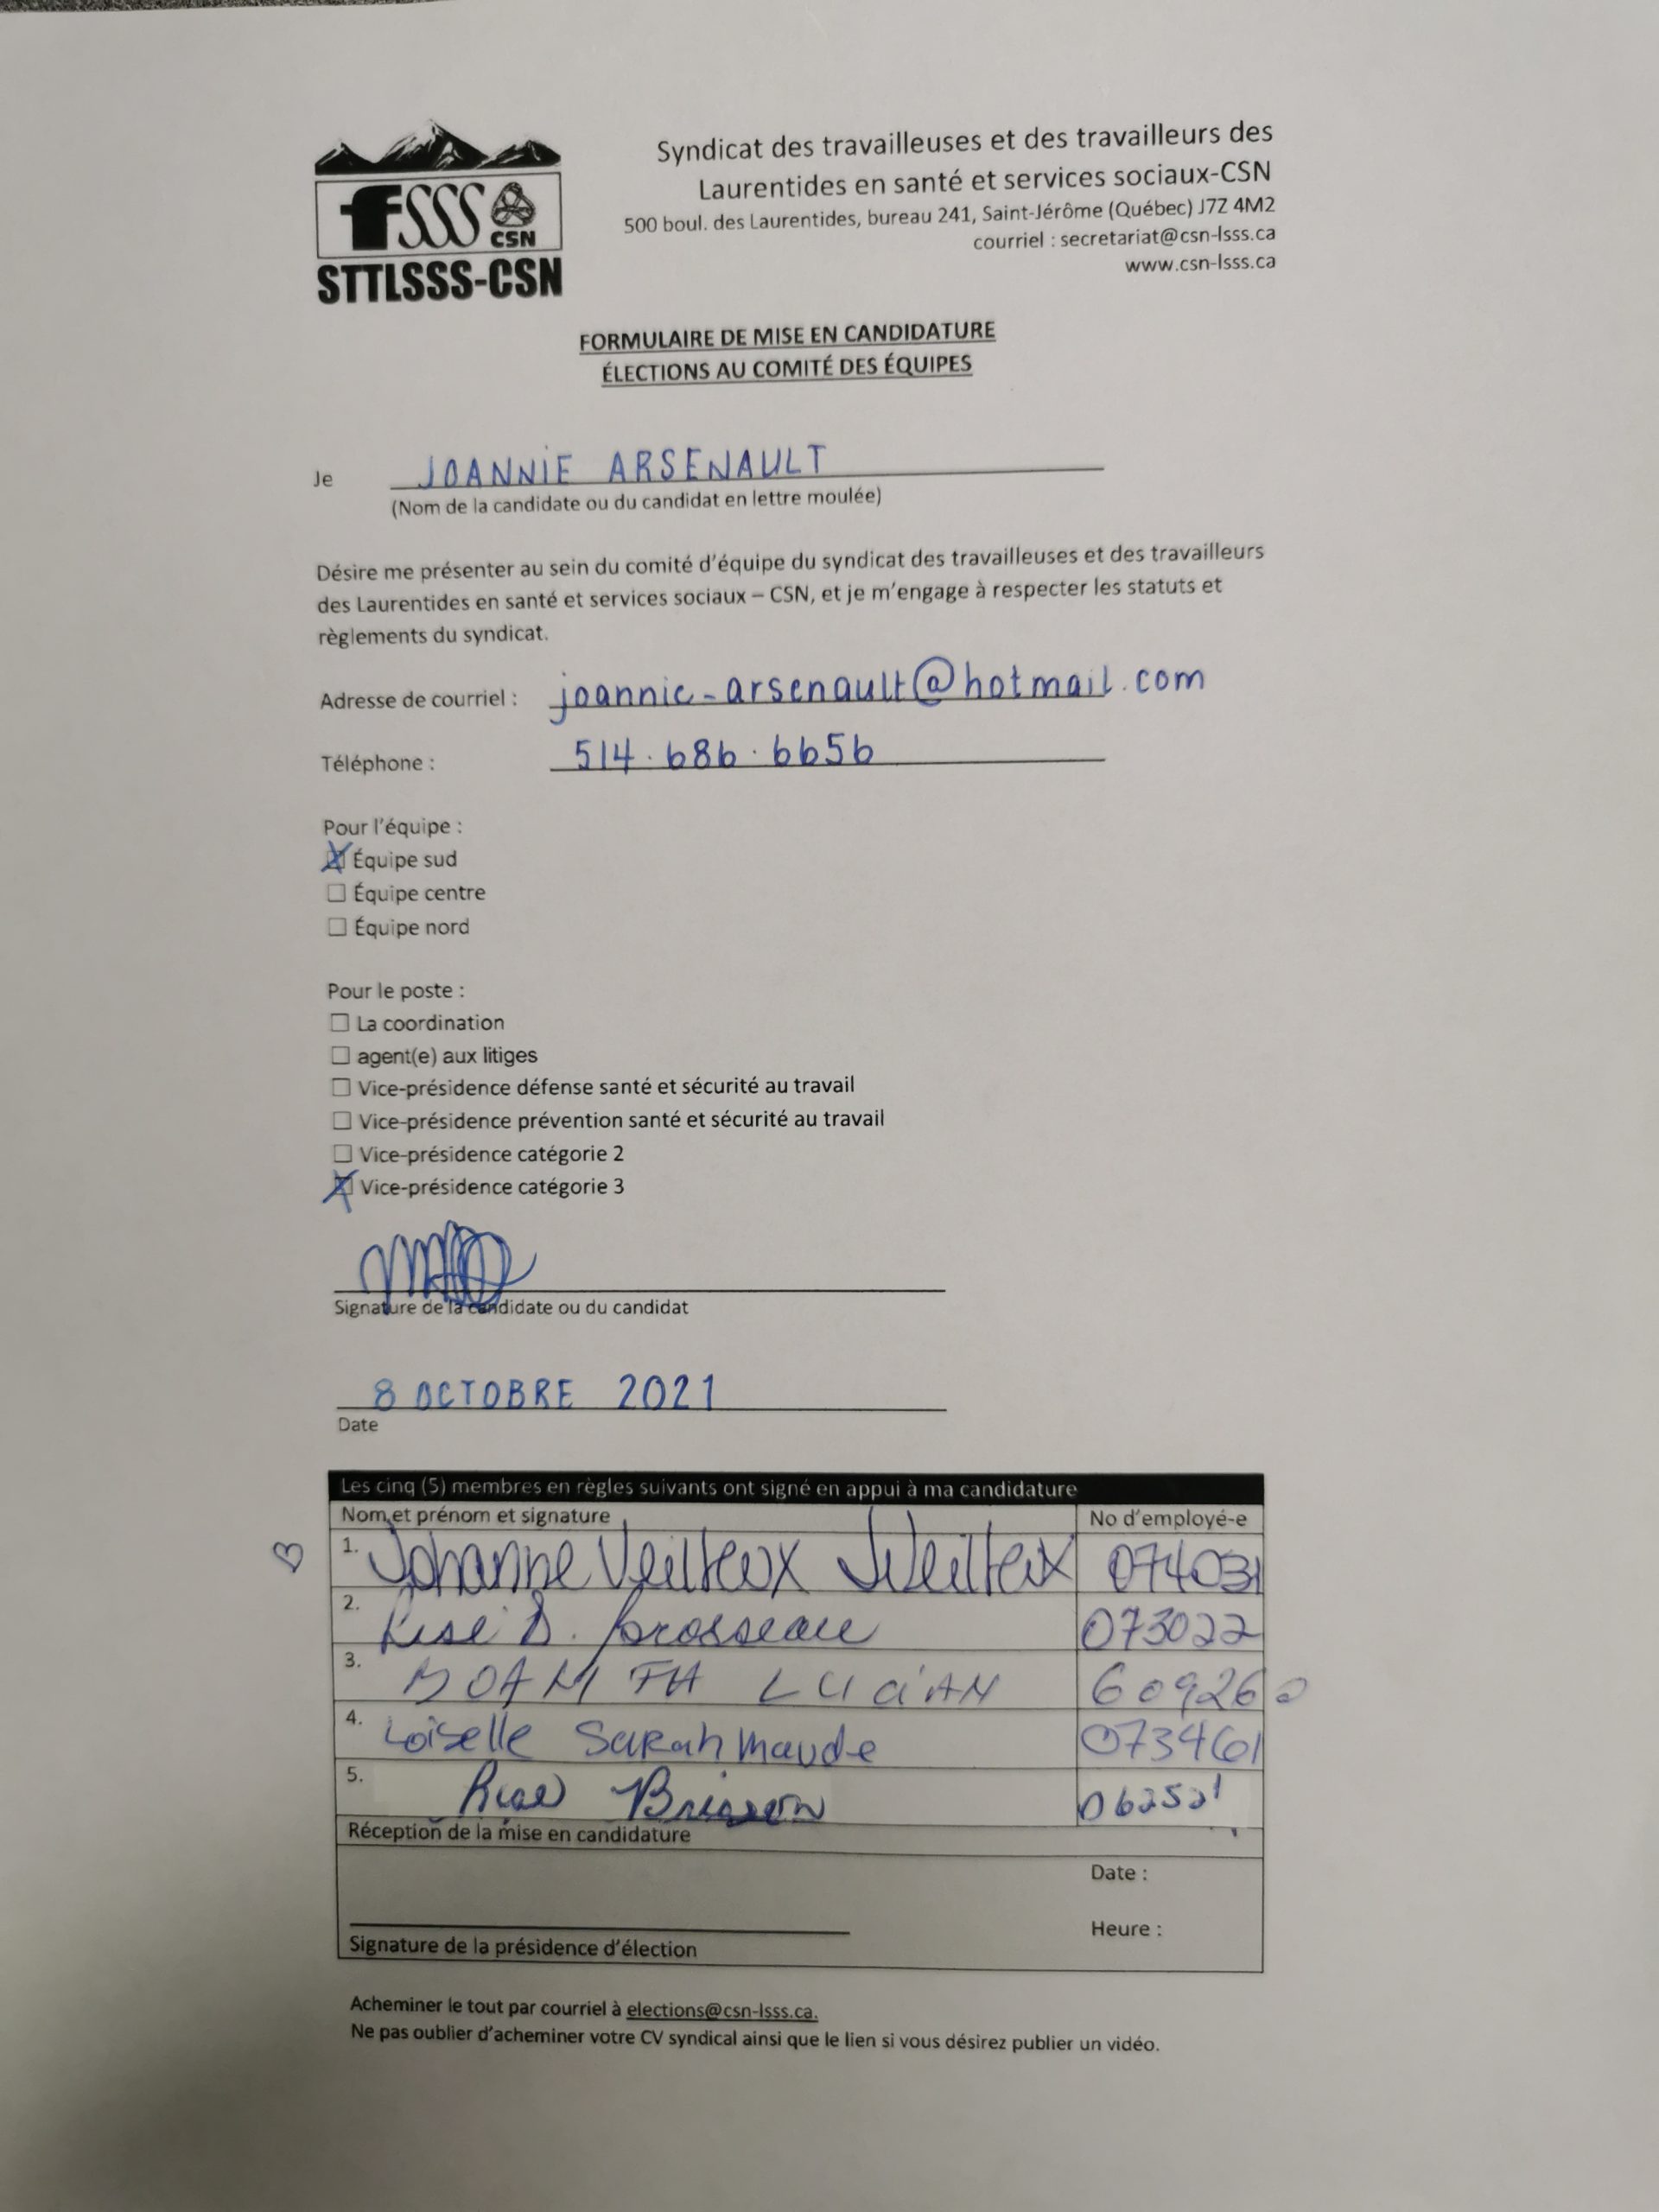 fsss
CSN
STTLSSS-CSN
Syndicat des travailleuses et des travailleurs des
Laurentides en santé et services sociaux-CSN
500 boul. des Laurentides, bureau 241, Saint-Jérôme (Québec) J7Z 4M2
courriel : secretariat@csn-lsss.ca
www.csn-lsss.ca
FORMULAIRE DE MISE EN CANDIDATURE
ÉLECTIONS AU COMITÉ DES ÉQUIPES
Je JOANNIE ARSENAULT
(Nom de la candidate ou du candidat en lettre moulée)
Désire me présenter au sein du comité d'équipe du syndicat des travailleuses et des travailleurs
des Laurentides en santé et services sociaux – CSN, et je m'engage à respecter les statuts et
règlements du syndicat.
Adresse de courriel : joannie-arsenault@hotmail.com
Téléphone : 514.686.6656
Pour l'équipe :
Équipe sud
Équipe centre
Équipe nord
Pour le poste :
La coordination
agent(e) aux litiges
Vice-présidence défense santé et sécurité au travail
Vice-présidence prévention santé et sécurité au travail
Vice-présidence catégorie 2
Vice-présidence catégorie 3
Signature de la candidate ou du candidat
8 OCTOBRE 2021
Date
Les cinq (5) membres en règles suivants ont signé en appui à ma candidature
Nom et prénom et signature No d'employé-e
1. Johanne Veilleux JVeilleux 074031
2. Lise D. Brosseau 073022
3. LUCIAN 609260
4. Loiselle Sarah Maude 073461
5. Brisson 062521
Réception de la mise en candidature
Date :
Heure :
Signature de la présidence d'élection
Acheminer le tout par courriel à elections@csn-lsss.ca.
Ne pas oublier d'acheminer votre CV syndical ainsi que le lien si vous désirez publier un vidéo.